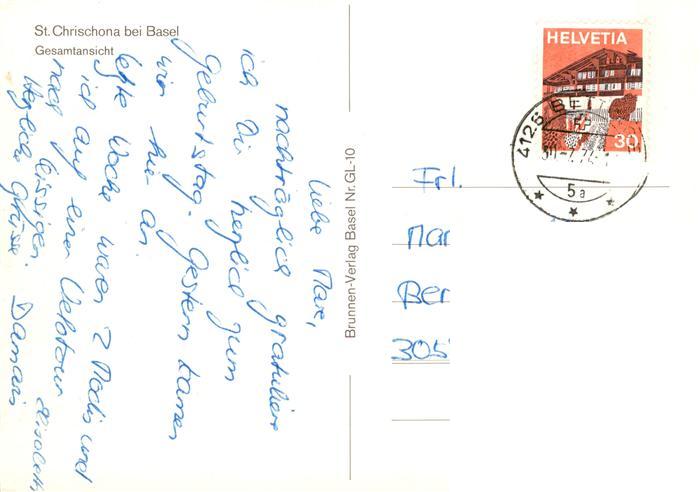 St. Chrischona bei Basel
Gesamtansicht
Liebe
nachträglich gratuliere
ich Dir herzlich zum
Geburtstag. Gestern kamen
wir hie an.
letzte Woche waren 2 Mädis und
ich auf einer Velotour
nach Gissigen. Elisabeth,
Herzliche Grüsse Damaris
Brunnen-Verlag Basel Nr. GL-10
HELVETIA
30
4126 BE
5a
Frl.
Mar
Ber
305